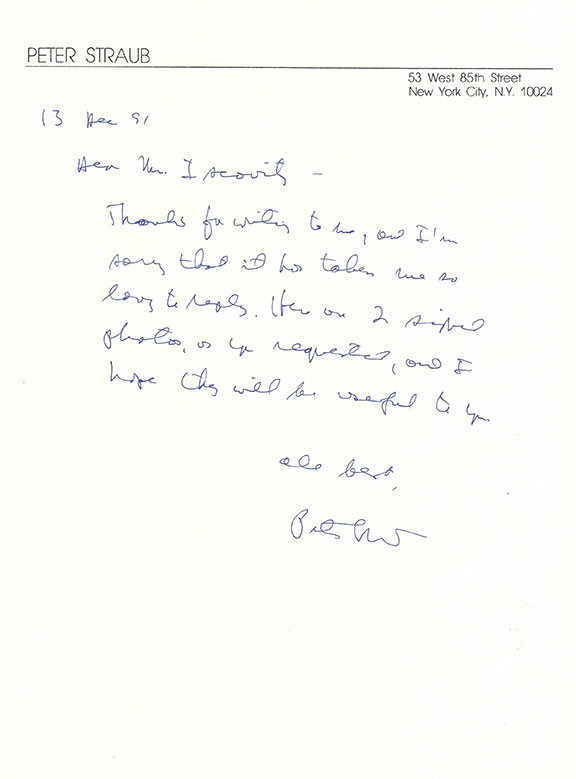 PETER STRAUB
53 West 85th Street
New York City, N.Y. 10024
13 Dec 91
Dear Mr. Iscovitz –
Thanks for writing to me, and I'm
sorry that it has taken me so
long to reply. Here are 2 signed
photos, as you requested, and I
hope they will be useful to you.
All best,
Peter Straub